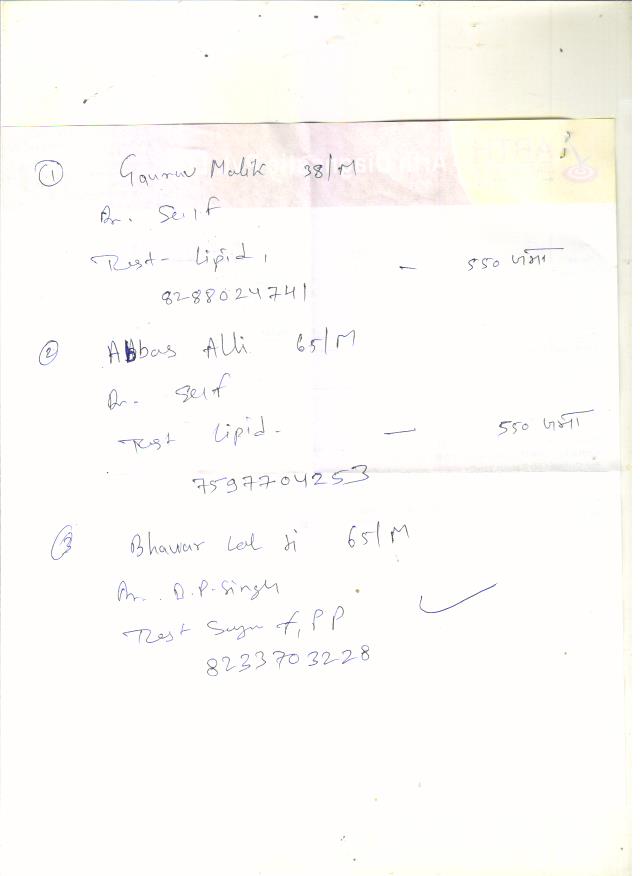 ① Gaurav Malik 38/M
Dr. Self
Test - Lipid, — 550 जमा
8288024741
② Abbas Alli 65/M
Dr. Self
Test Lipid - — 550 जमा
7597704253
③ Bhawar Lal Ji 65/M
Dr. D.P. Singh
Test Sugar f, PP
8233703228